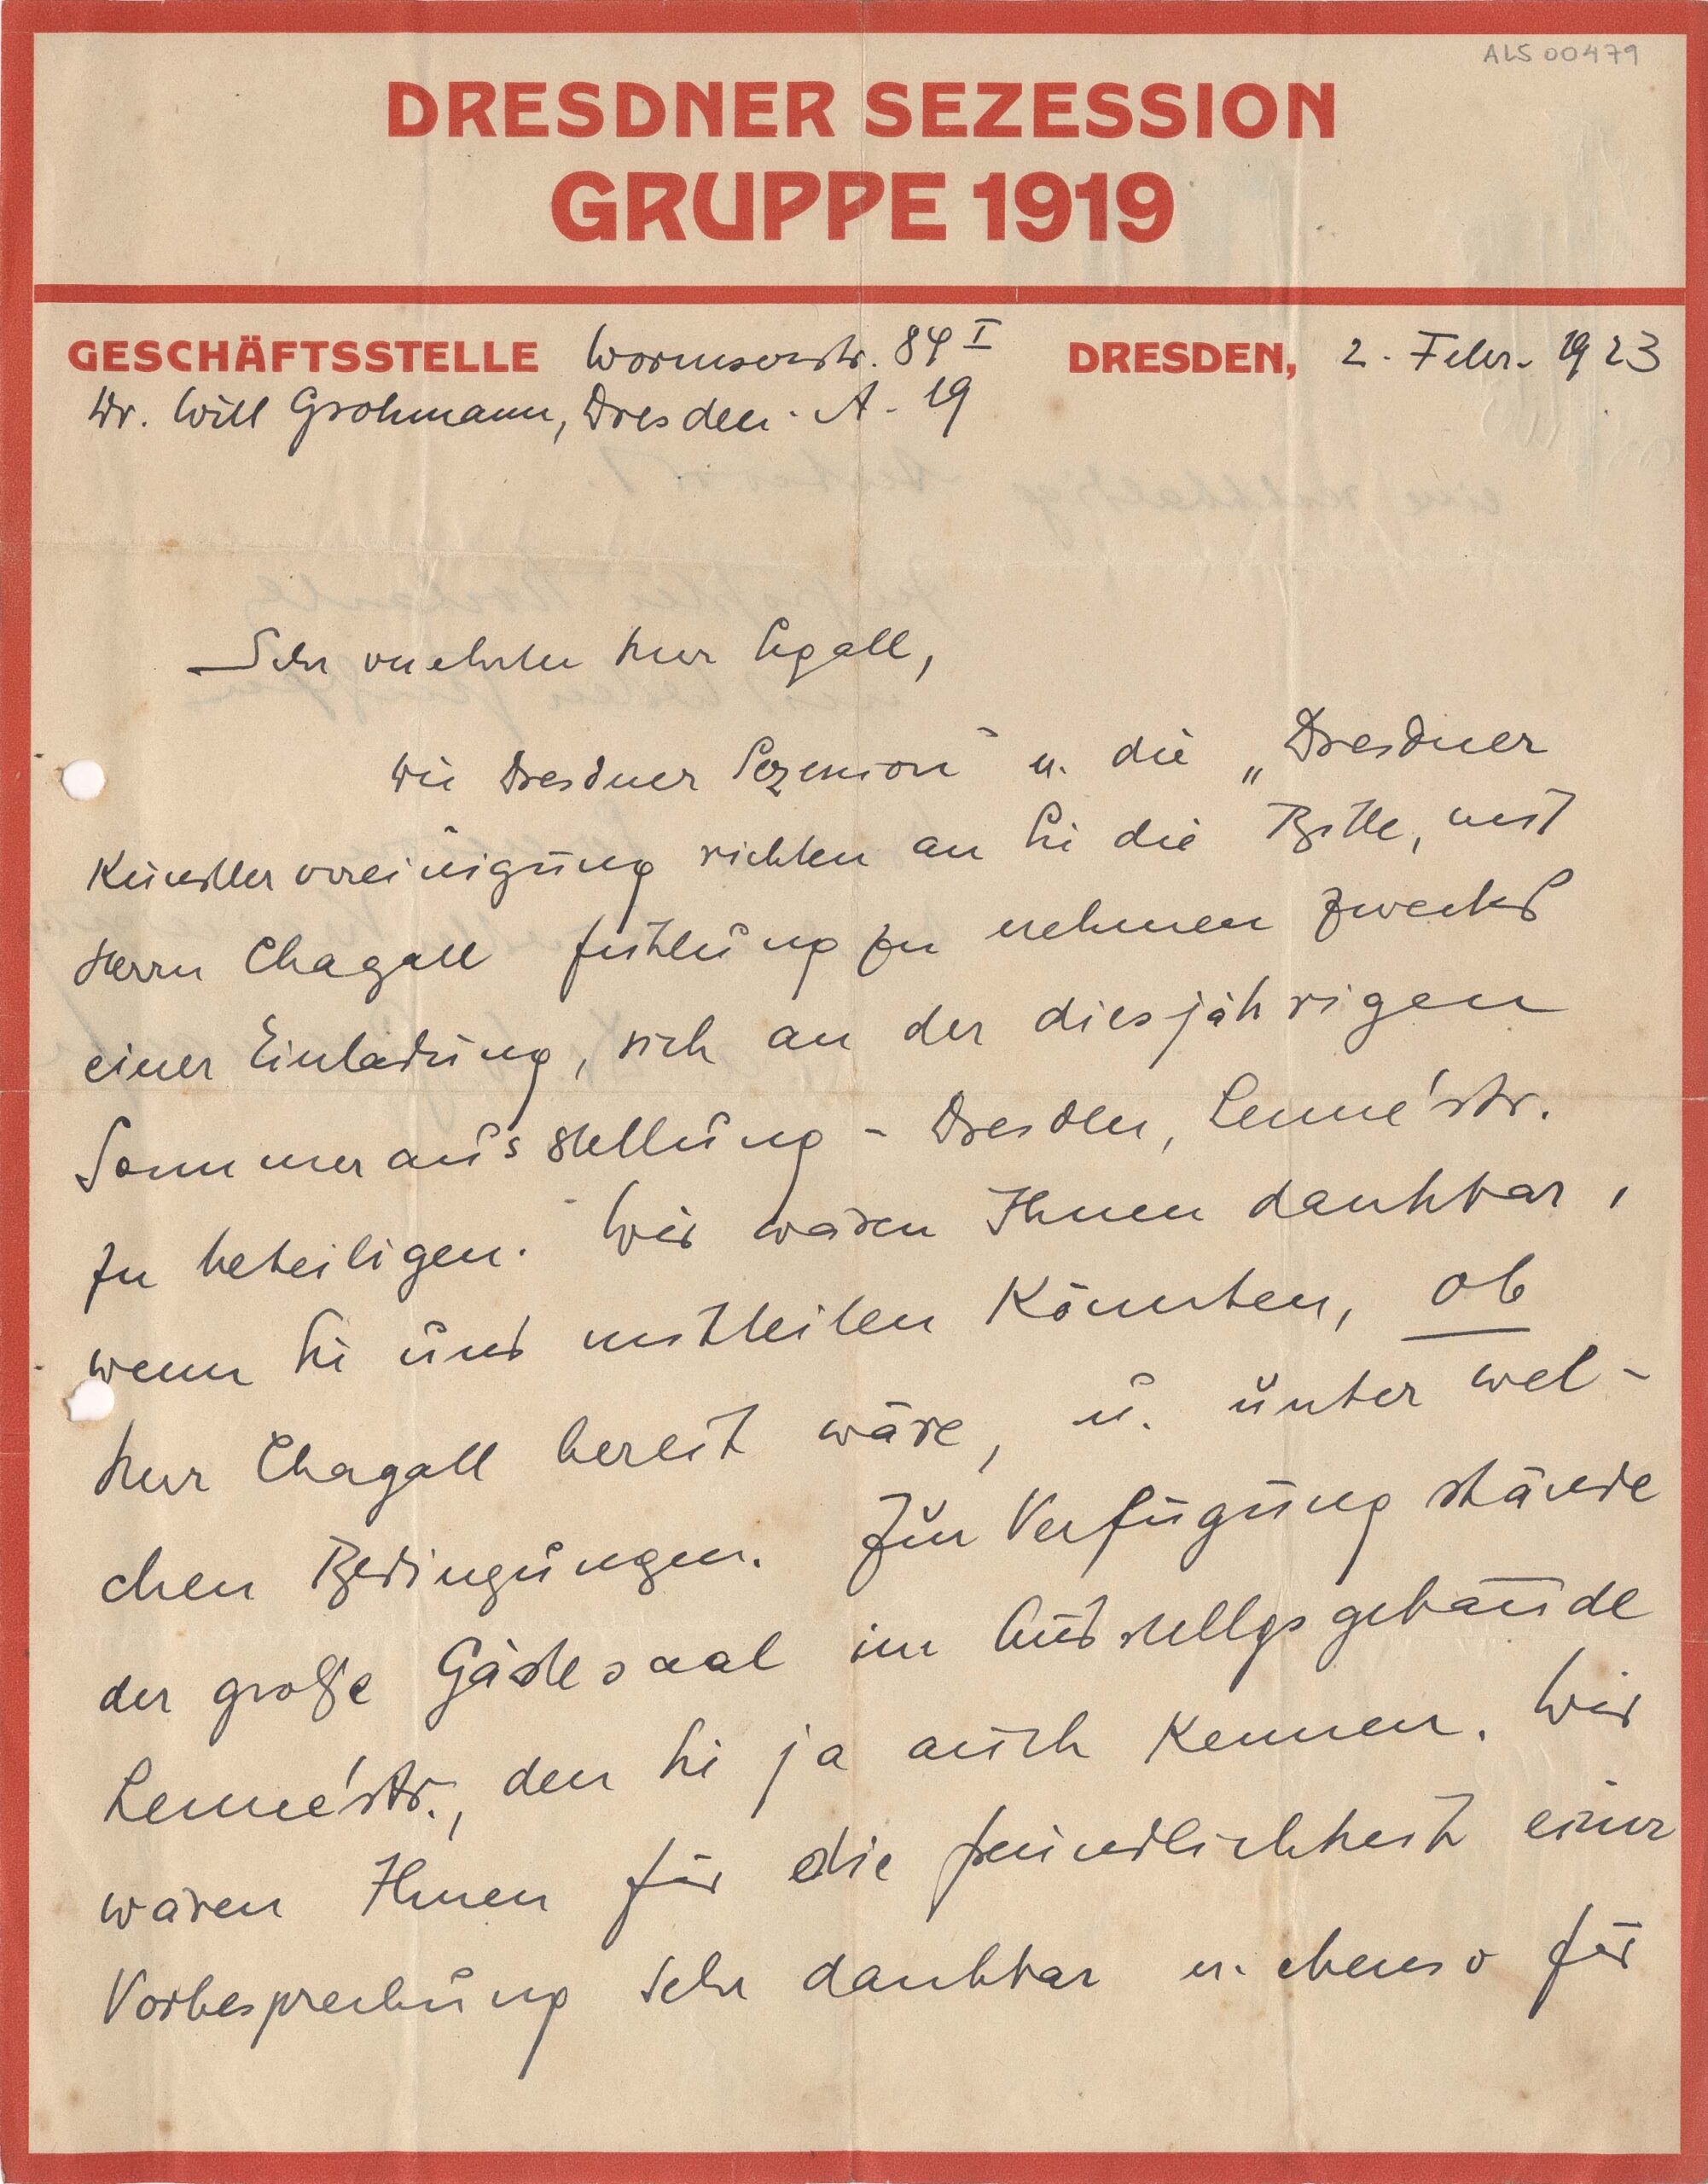 ALS 00479
DRESDNER SEZESSION
GRUPPE 1919
GESCHÄFTSSTELLE Wormserstr. 84 I DRESDEN, 2. Febr. 1923
Dr. Will Grohmann, Dresden-A-19
Sehr verehrter Herr Segall,
die Dresdner Sezession" u. die „Dresdner
Künstlervereinigung richten an Sie die Bitte, mit
Herrn Chagall Fühlung zu nehmen zwecks
einer Einladung, sich an der diesjährigen
Sommerausstellung - Dresden, Lennéstr.
zu beteiligen. Wir wären Ihnen dankbar,
wenn Sie uns mitteilen könnten, ob
Herr Chagall bereit wäre, u. unter wel-
chen Bedingungen. Zur Verfügung stände
der große Gästesaal im Ausstellgsgebäude
Lennéstr., den Sie ja auch kennen. Wir
wären Ihnen für die Freundlichkeit einer
Vorbesprechung sehr dankbar u. ebenso für